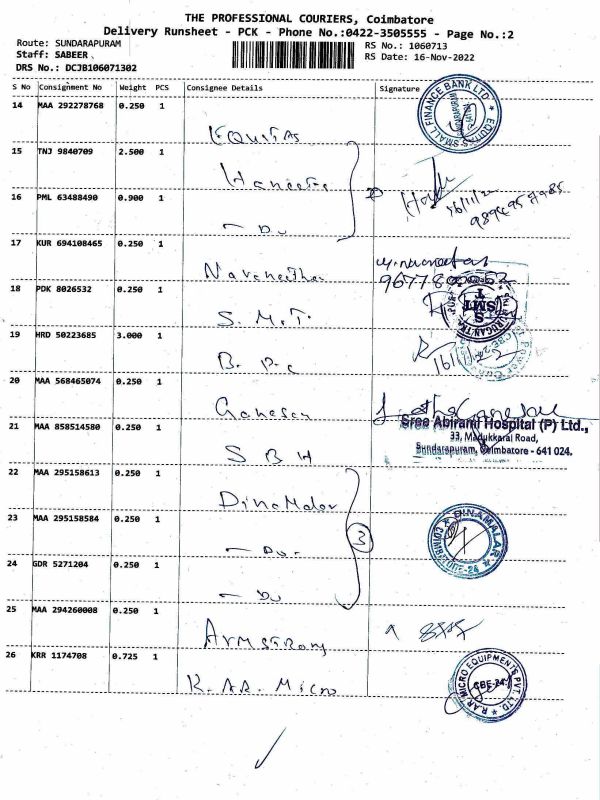 THE PROFESSIONAL COURIERS, Coimbatore
Delivery Runsheet - PCK - Phone No.:0422-3505555 - Page No.:2
Route: SUNDARAPURAM
RS No.: 1060713
Staff: SABEER
RS Date: 16-Nov-2022
DRS No.: DCJB106071302
S No Consignment No Weight PCS Consignee Details Signature
14 MAA 292278768 0.250 1
EQUITAS SMALL FINANCE BANK LTD
EQUITAS
15 TNJ 9840709 2.500 1
16 PML 63488490 0.900 1
16/11/22
- Do
17 KUR 694108465 0.250 1
Navaneetha
18 PDK 8026532 0.250 1
S.M.T.
SMT
19 HRD 50223685 3.000 1
B. P. C
16/11/22
20 MAA 568465074 0.250 1
Ganesan
21 MAA 858514580 0.250 1
Sree Abirami Hospital (P) Ltd.,
33, Madukkarai Road,
Sundarapuram, Coimbatore - 641 024.
S B H
22 MAA 295158613 0.250 1
DinaMalar
23 MAA 295158584 0.250 1
DINAMALAR
- Do -
3
24 GDR 5271204 0.250 1
- Do
25 MAA 294260008 0.250 1
Armstrong
26 KRR 1174708 0.725 1
R.AR MICRO EQUIPMENTS PVT. LTD
CBE-24
R. AR. Micro